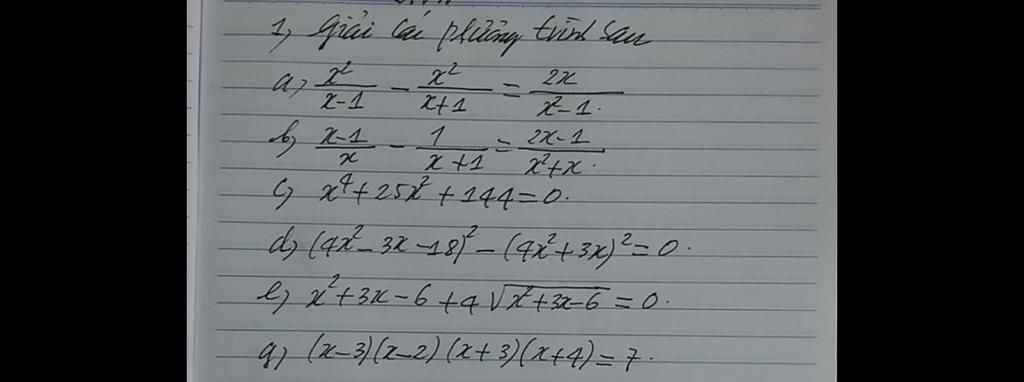 1, Giải các phương trình sau
a, x²/(x-1) - x²/(x+1) = 2x/(x²-1).
b, (x-1)/x - 1/(x+1) = (2x-1)/(x²+x).
c, x⁴+25x²+144=0.
d, (4x²-3x-18)²-(4x²+3x)²=0.
e, x²+3x-6+4√(x²+3x-6)=0.
g, (x-3)(x-2)(x+3)(x+4)=7.